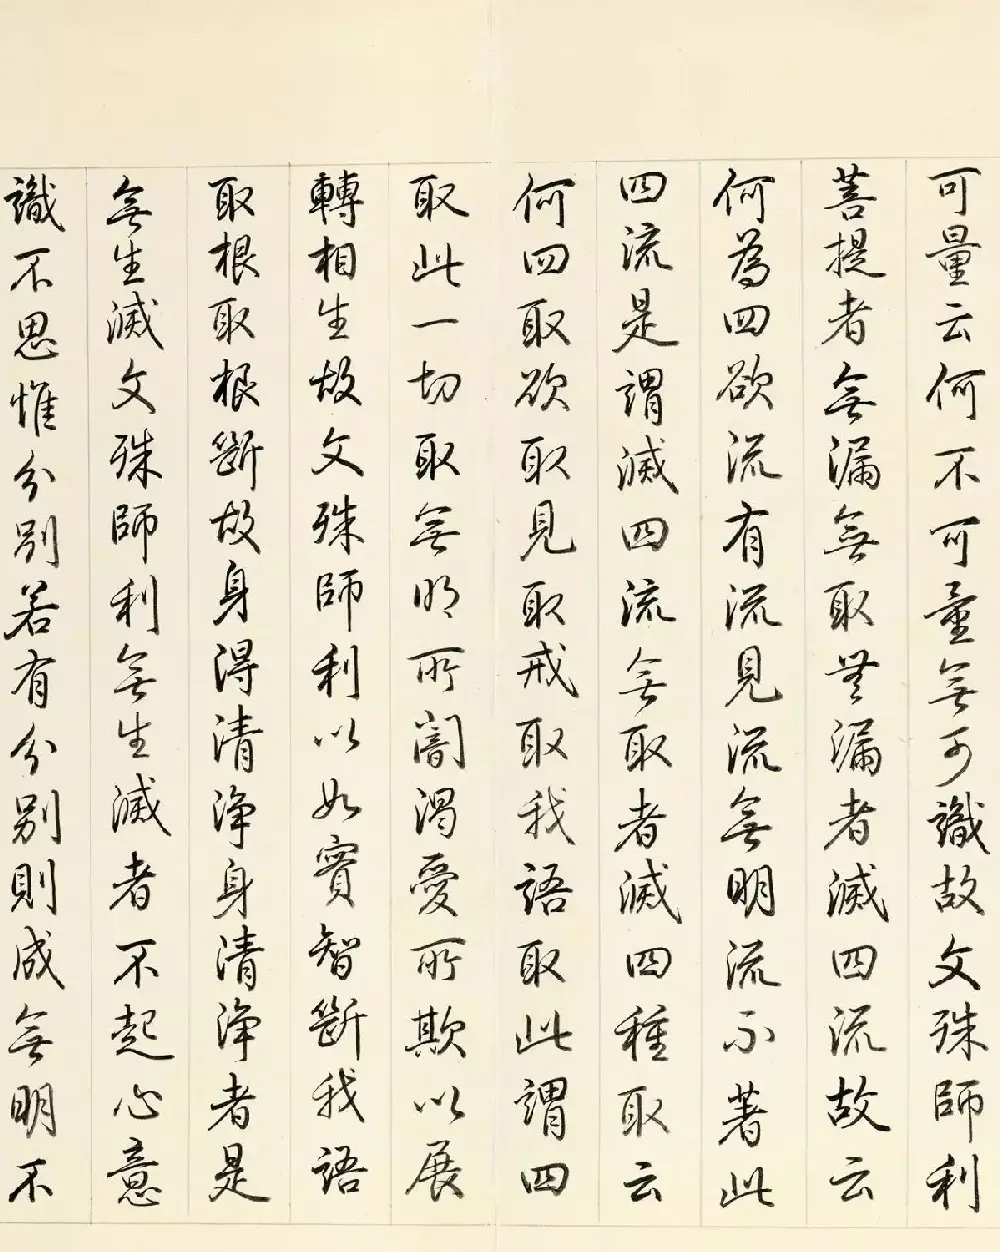 可量云何不可量無可識故文殊師利
菩提者無漏無取無漏者滅四流故云
何為四欲流有流見流無明流不著此
四流是謂滅四流無取者滅四種取云
何四取欲取見取戒取我語取此謂四
取此一切取無明所闇渴愛所欺以展
轉相生故文殊師利以如實智斷我語
取根取根斷故身得清淨身清淨者是
無生滅文殊師利無生滅者不起心意
識不思惟分別若有分別則成無明不